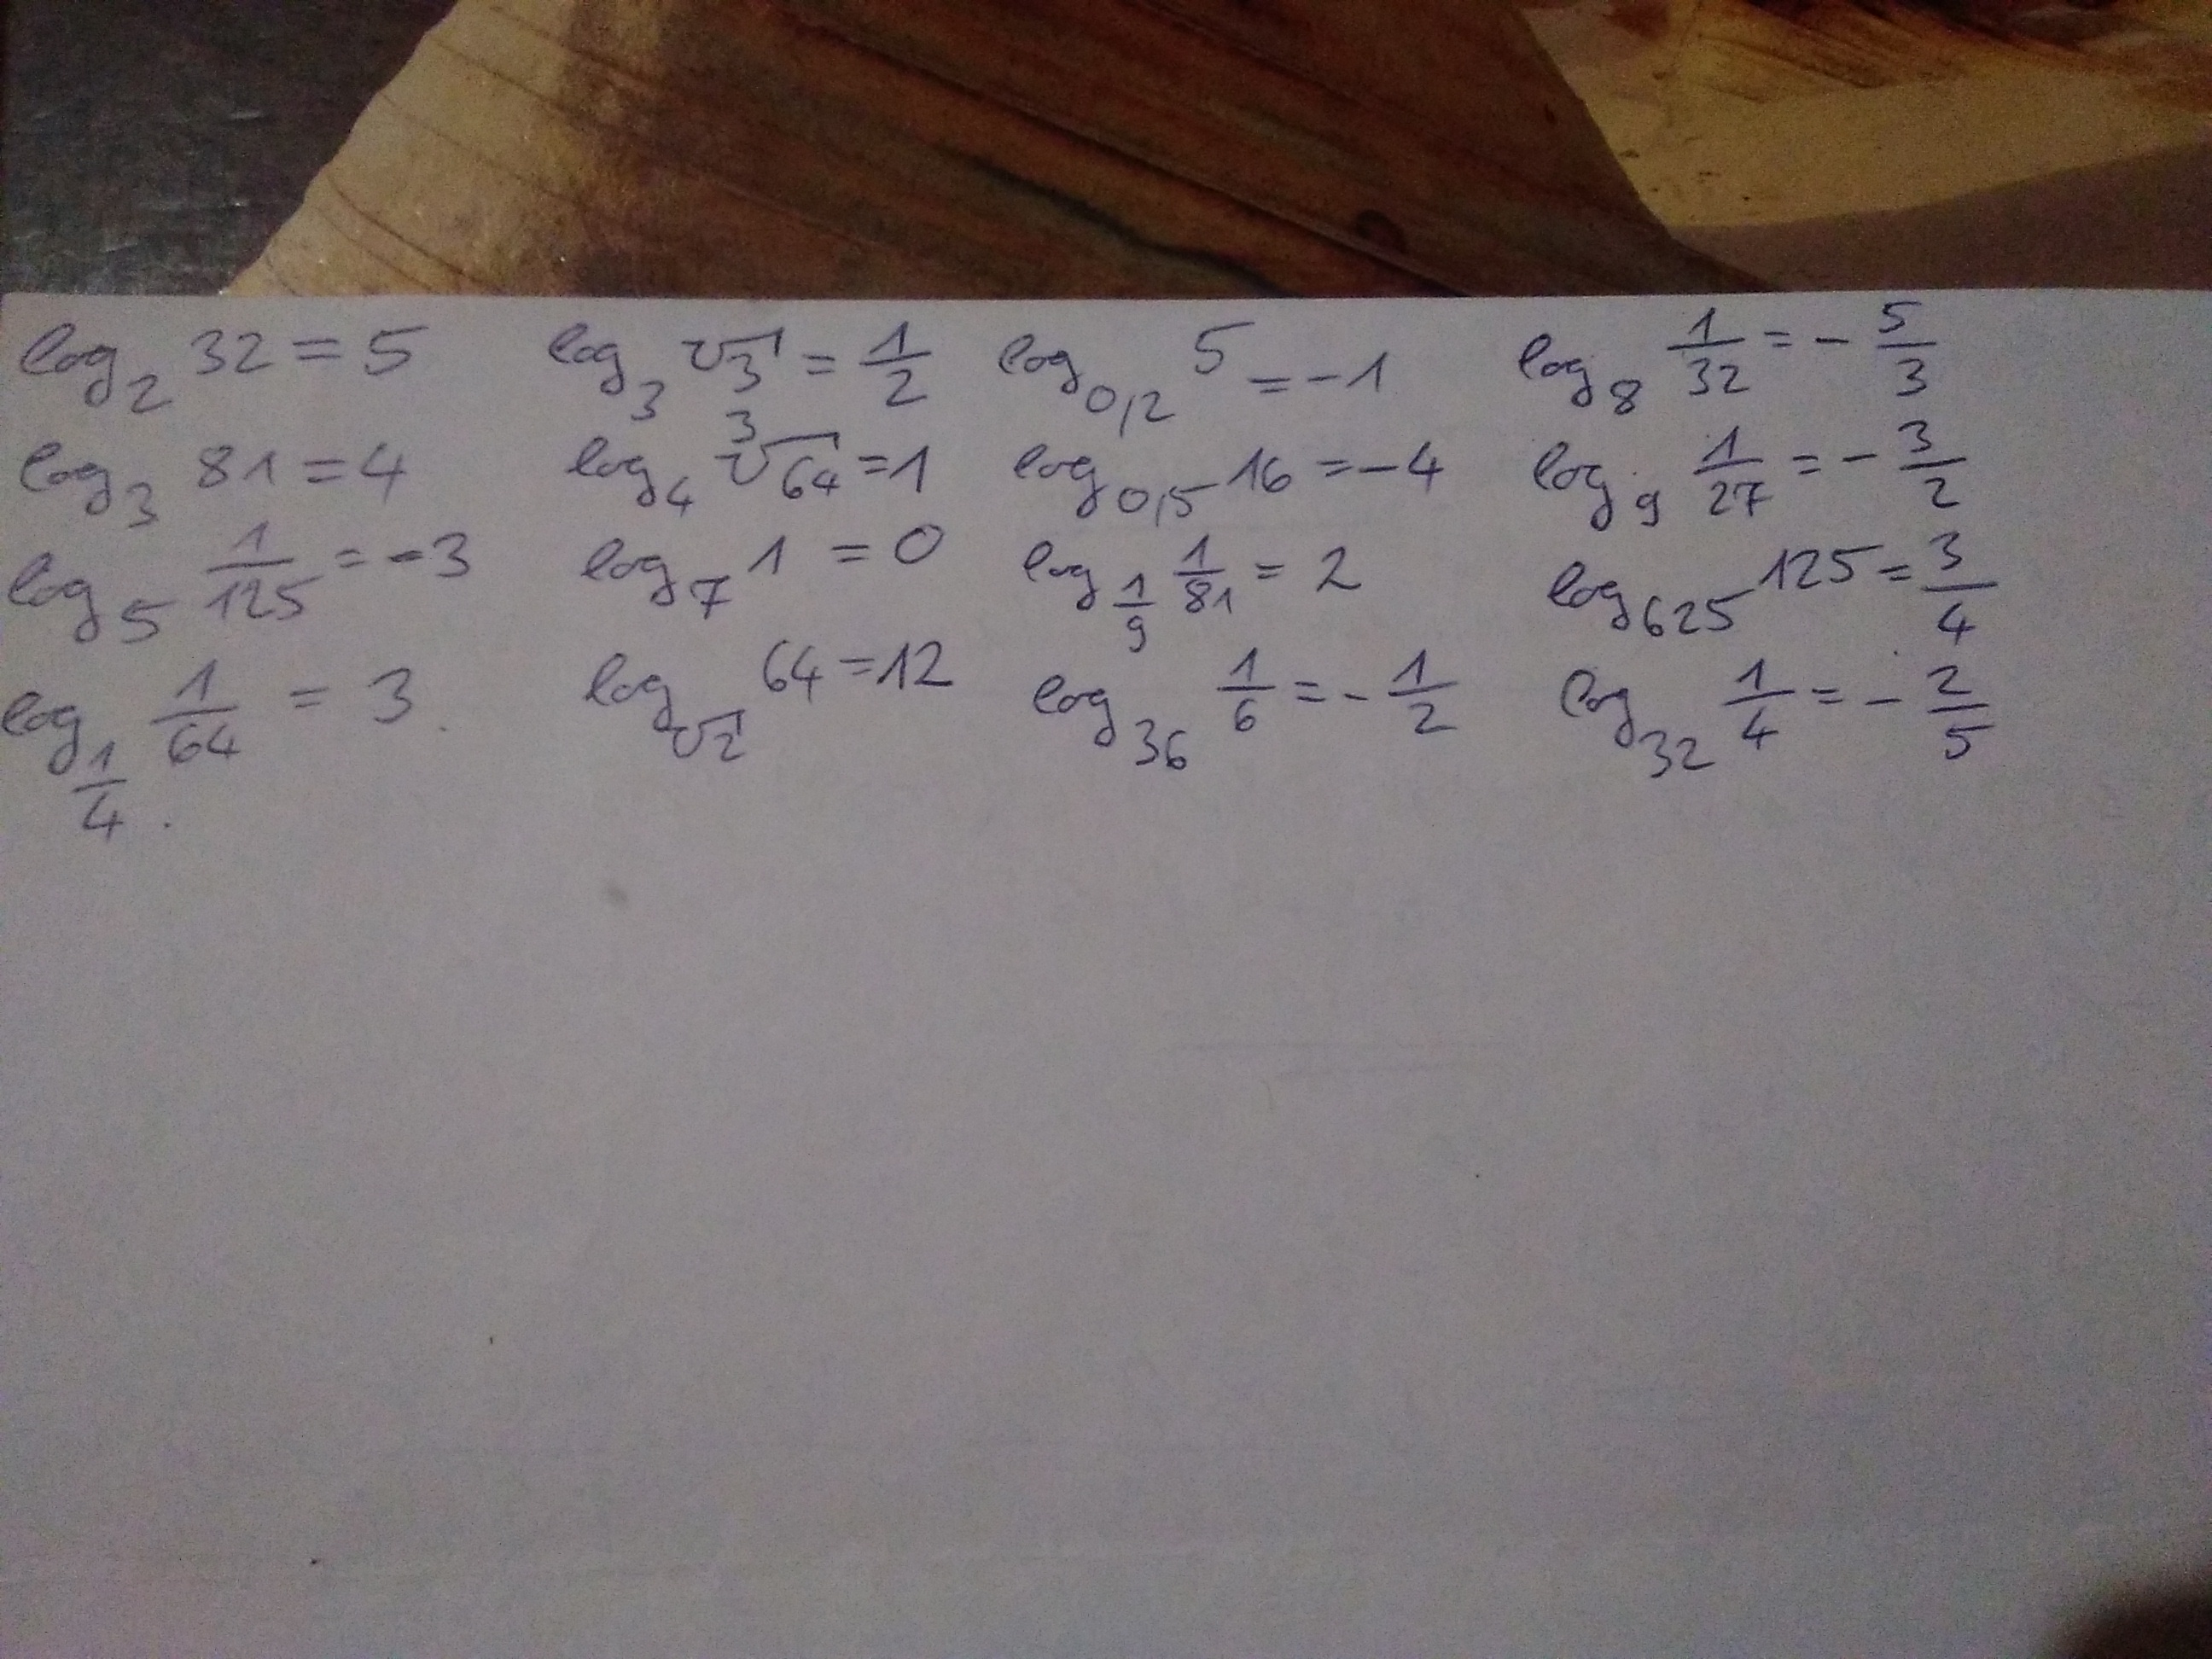 log₂ 32 = 5 log₃ √3 = 1/2 log₀,₂ 5 = -1 log₈ 1/32 = - 5/3
log₃ 81 = 4 log₄ ³√64 = 1 log₀,₅ 16 = -4 log₉ 1/27 = - 3/2
log₅ 1/125 = -3 log₇ 1 = 0 log_(1/9) 1/81 = 2 log₆₂₅ 125 = 3/4
log_(1/4) 1/64 = 3 log_(√2) 64 = 12 log₃₆ 1/6 = - 1/2 log₃₂ 1/4 = - 2/5